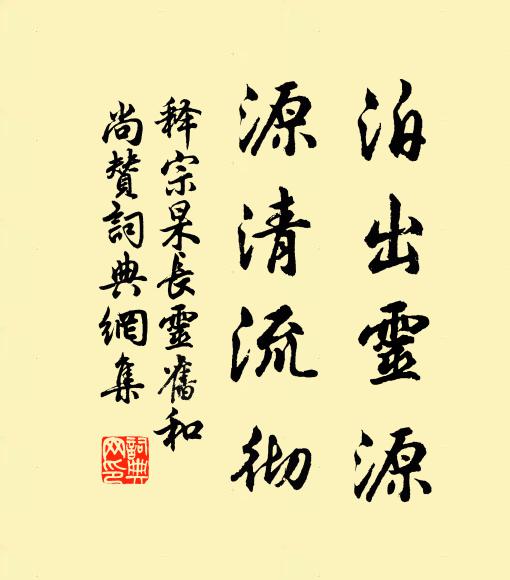 泊出靈源
源清流彻
釋宗杲長靈舊和
尚贊詞典網集
詞典
网印